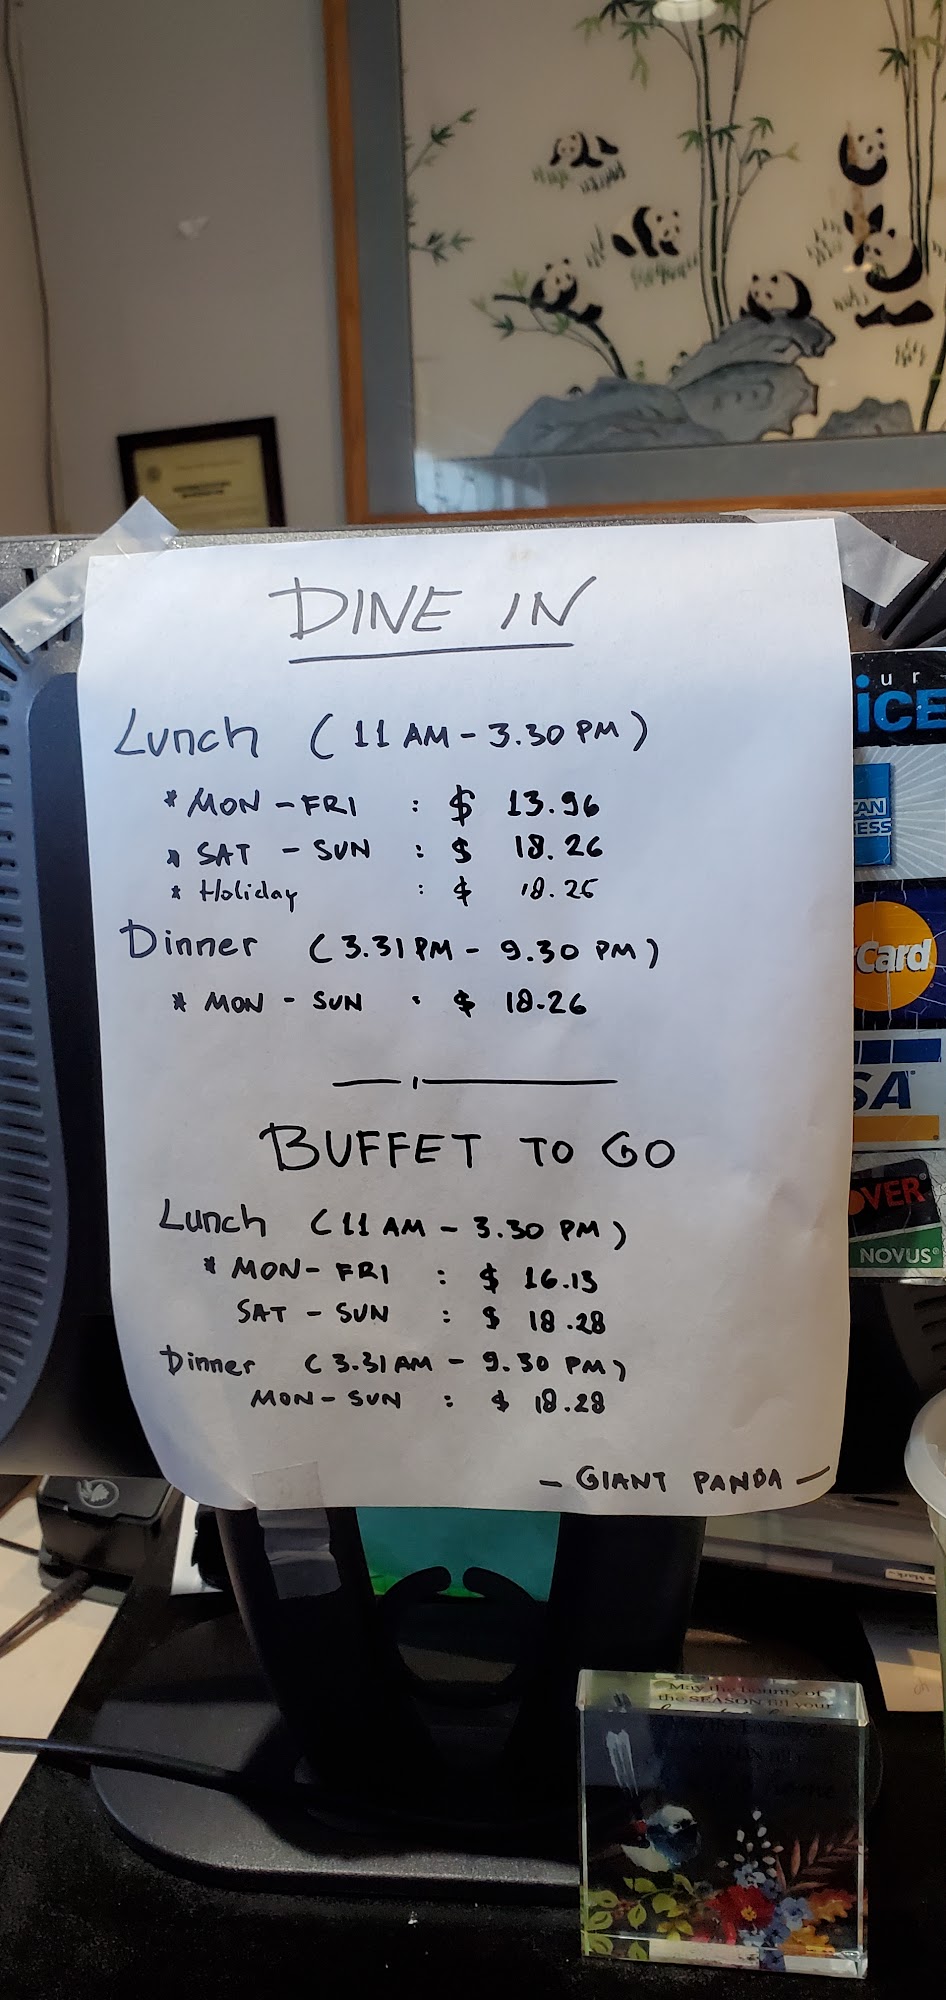 DINE IN
Lunch ( 11 AM - 3.30 PM )
* MON - FRI : $ 13.96
* SAT - SUN : $ 18.26
* Holiday : $ 18.26
Dinner ( 3.31 PM - 9.30 PM )
* MON - SUN : $ 18.26
BUFFET TO GO
Lunch ( 11 AM - 3.30 PM )
* MON - FRI : $ 16.13
SAT - SUN : $ 18.28
Dinner ( 3.31 AM - 9.30 PM )
MON - SUN : $ 18.28
- GIANT PANDA -
ur
iCE
CAN
ESS
Card
SA
OVER
NOVUS
May the bounty of
the SEASON fill your